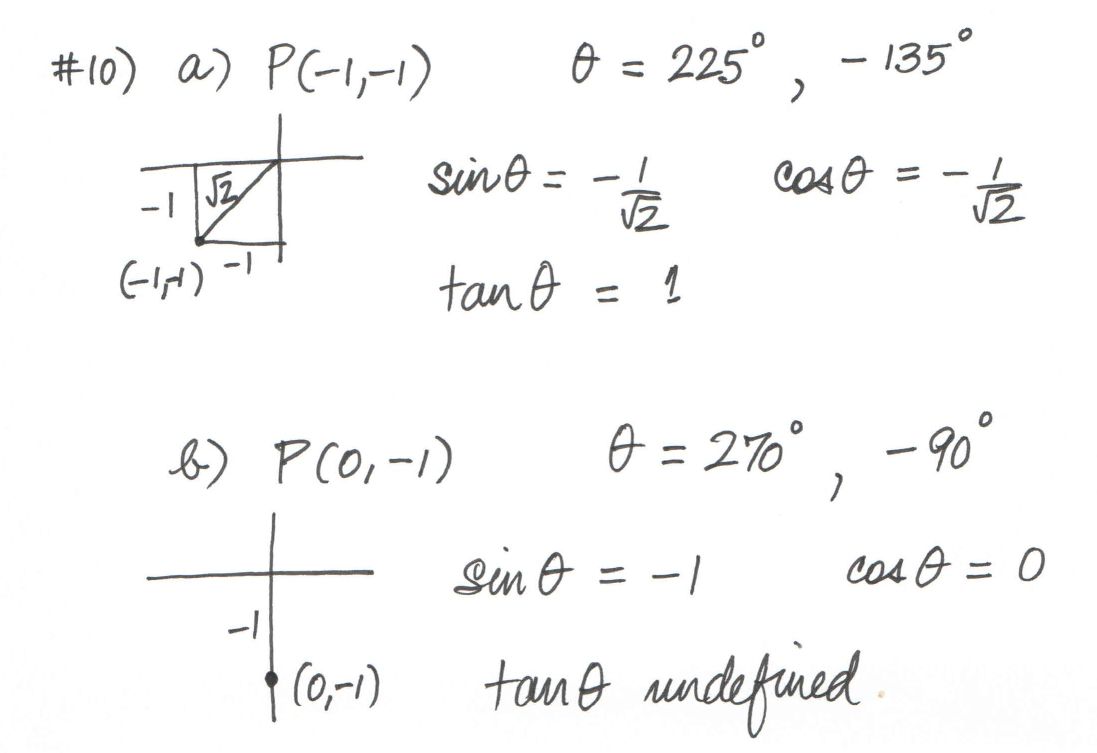 #10) a) P(-1,-1) θ = 225° , -135°
√2
-1
sin θ = -1/√2 cos θ = -1/√2
(-1,-1) -1
tan θ = 1
b) P(0,-1) θ = 270° , -90°
sin θ = -1 cos θ = 0
-1
(0,-1) tan θ undefined.